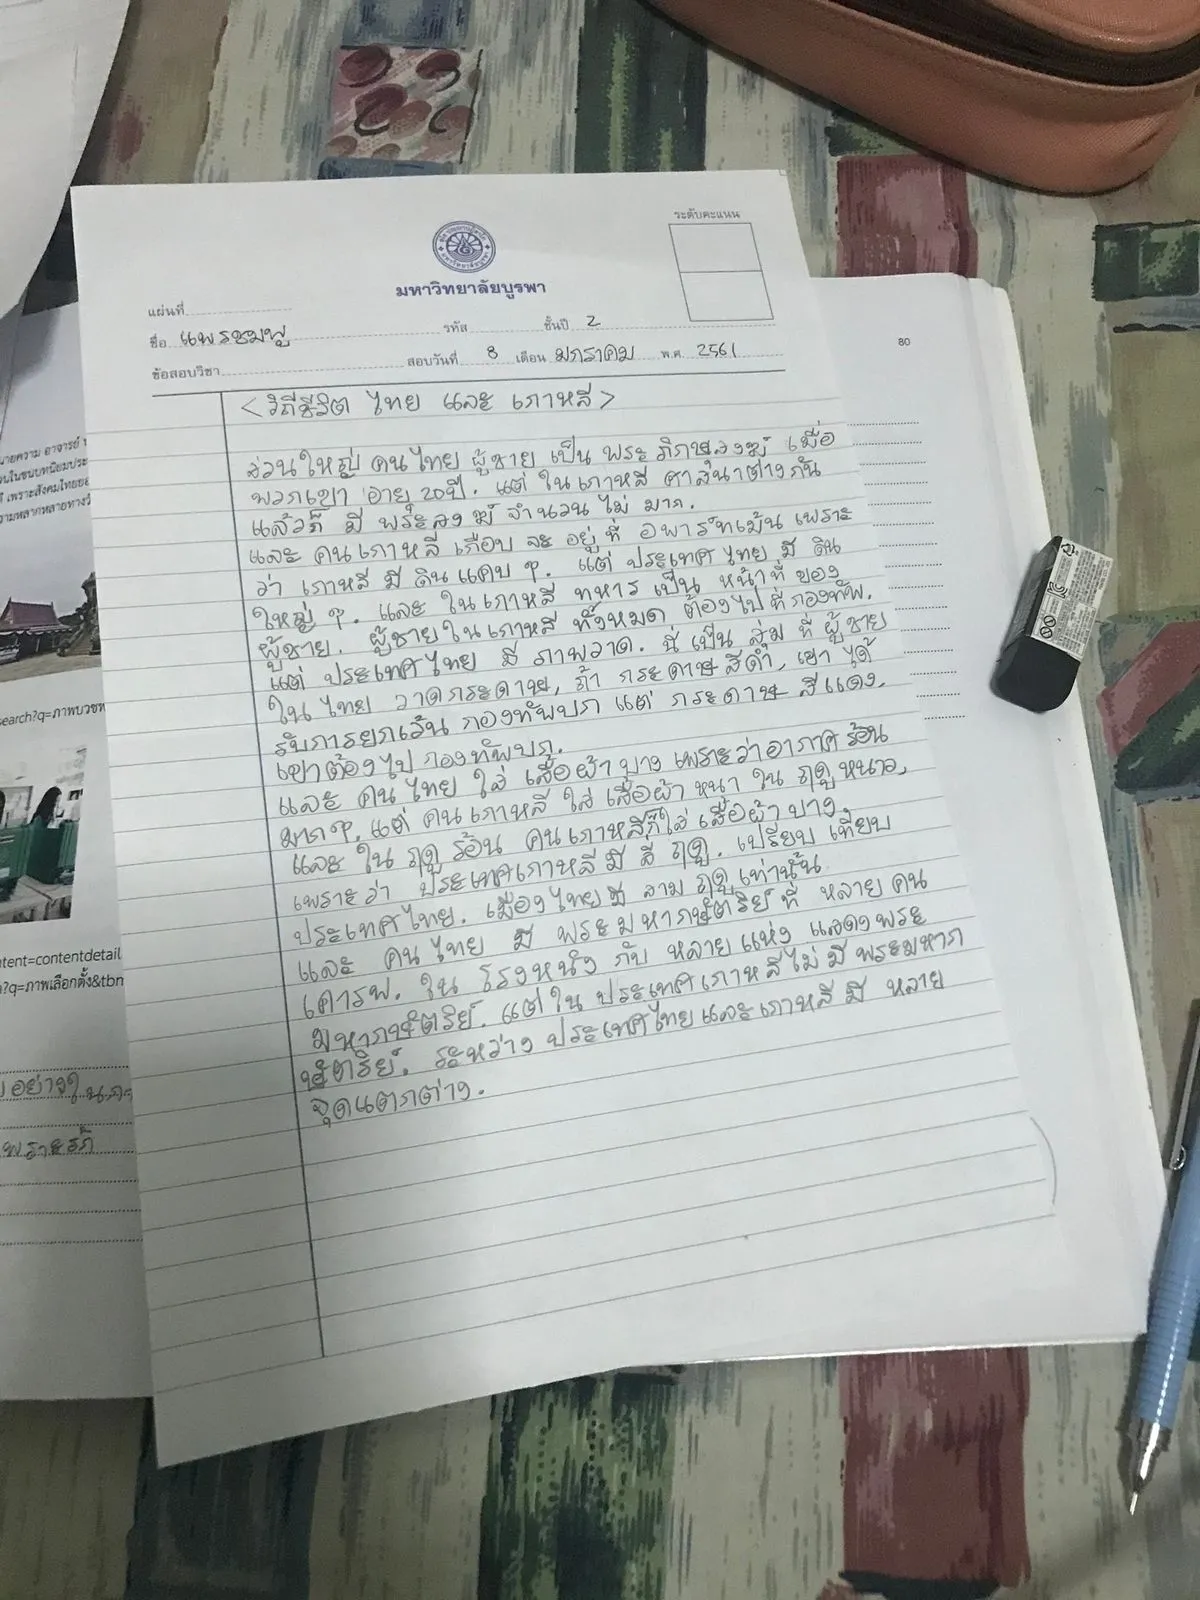 ระดับคะแนน
มหาวิทยาลัยบูรพา
แผ่นที่
ชื่อ แพรชมพู รหัส ชั้นปี 2
ข้อสอบวิชา สอบวันที่ 8 เดือน มกราคม พ.ศ. 2561
<วิถีชีวิต ไทย และ เกาหลี>
ส่วนใหญ่ คนไทย ผู้ชาย เป็น พระภิกษุสงฆ์ เมื่อ
พวกเขา อายุ 20ปี. แต่ ในเกาหลี ศาสนาต่างกัน
แล้วก็ มี พระสงฆ์ จำนวน ไม่ มาก.
และ คนเกาหลี เกือบ จะ อยู่ที่ อพาร์ทเม้น เพราะ
ว่า เกาหลี มี ดินแคบ ๆ. แต่ ประเทศไทย มี ดิน
ใหญ่ ๆ. และ ในเกาหลี ทหาร เป็น หน้าที่ ของ
ผู้ชาย. ผู้ชายในเกาหลี ทั้งหมด ต้องไป ที่กองทัพ.
แต่ ประเทศไทย มี ภาพวาด. นี่ เป็น สุ่ม ที่ ผู้ชาย
ใน ไทย วาดกระดาษ, ถ้า กระดาษ สีดำ, เขา ได้
รับการยกเว้น กองทัพบก แต่ กระดาษ สีแดง.
เขาต้องไป กองทัพบก.
และ คน ไทย ใส่ เสื้อผ้า บาง เพราะว่าอากาศ ร้อน
มาก ๆ. แต่ คน เกาหลี ใส่ เสื้อผ้า หนา ใน ฤดู หนาว,
และ ใน ฤดู ร้อน คนเกาหลีก็ใส่ เสื้อผ้า บาง,
เพราะว่า ประเทศเกาหลี มี สี่ ฤดู. เปรียบ เทียบ
ประเทศไทย. เมืองไทย มี สาม ฤดู เท่านั้น
และ คนไทย มี พระมหากษัตริย์ ที่ หลาย คน
เคารพ. ใน โรงหนัง กับ หลาย แห่ง แสดง พระ
มหากษัตริย์. แต่ ใน ประเทศเกาหลี ไม่ มี พระมหาก
ษัตริย์. ระหว่าง ประเทศไทย และเกาหลี มี หลาย
จุดแตกต่าง.
80
นายความ อาจารย์
เพราะสังคมไทยขอ
search?q=ภาพบวชพ
ntent=contentdetail
?q=ภาพเลือกตั้ง&tbn